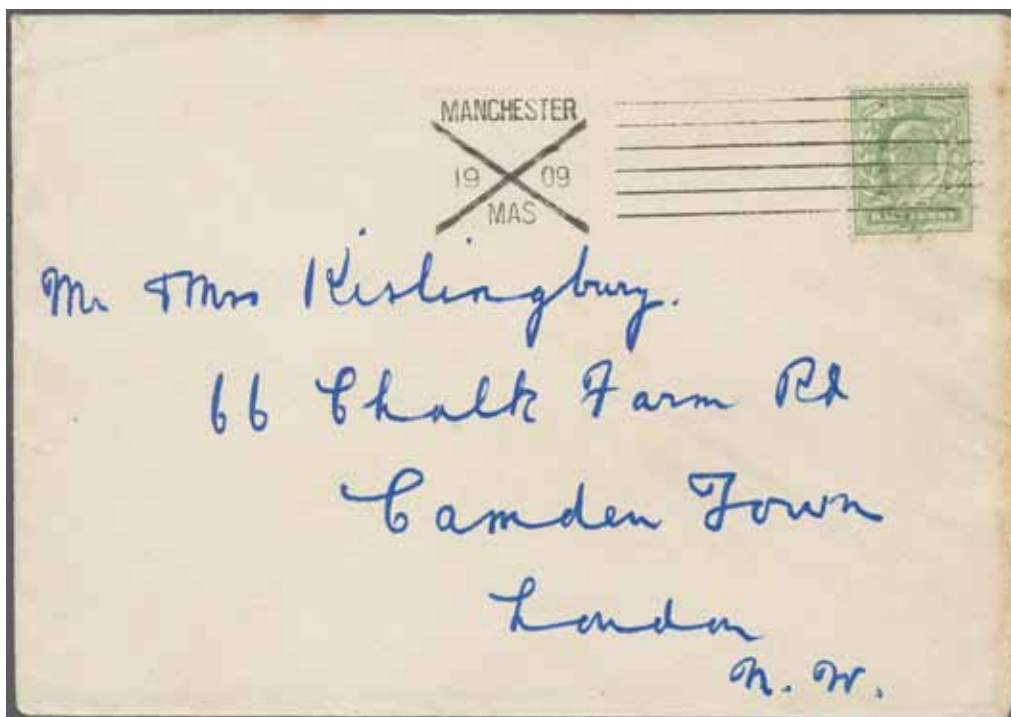 MANCHESTER
19 09
MAS
HALFPENNY
Mr & Mrs Kislingbury.
66 Chalk Farm Rd
Camden Town
London
N. W.